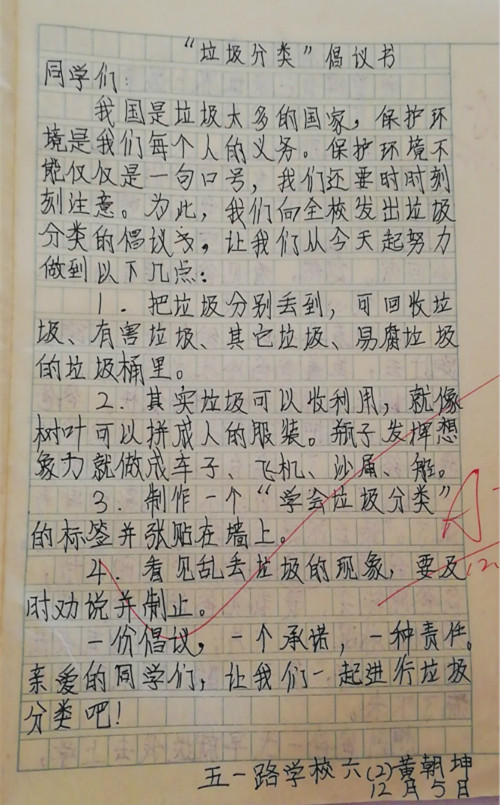 “垃圾分类”倡议书
同学们：
我国是垃圾太多的国家，保护环
境是我们每个人的义务。保护环境不
能仅仅是一句口号，我们还要时时刻
刻注意。为此，我们向全校发出垃圾
分类的倡议书，让我们从今天起努力
做到以下几点：
1．把垃圾分别丢到，可回收垃
圾、有害垃圾、其它垃圾、易腐垃圾
的垃圾桶里。
2．其实垃圾可以收利用，就像
树叶可以拼成人的服装。瓶子发挥想
象力就做成车子、飞机、沙漏、船。
3．制作一个“学会垃圾分类”
的标签并张贴在墙上。
4．看见乱丢垃圾的现象，要及
时劝说并制止。
一份倡议，一个承诺，一种责任。
亲爱的同学们，让我们一起进行垃圾
分类吧！
五一路学校六(2)黄朝坤
12月5日